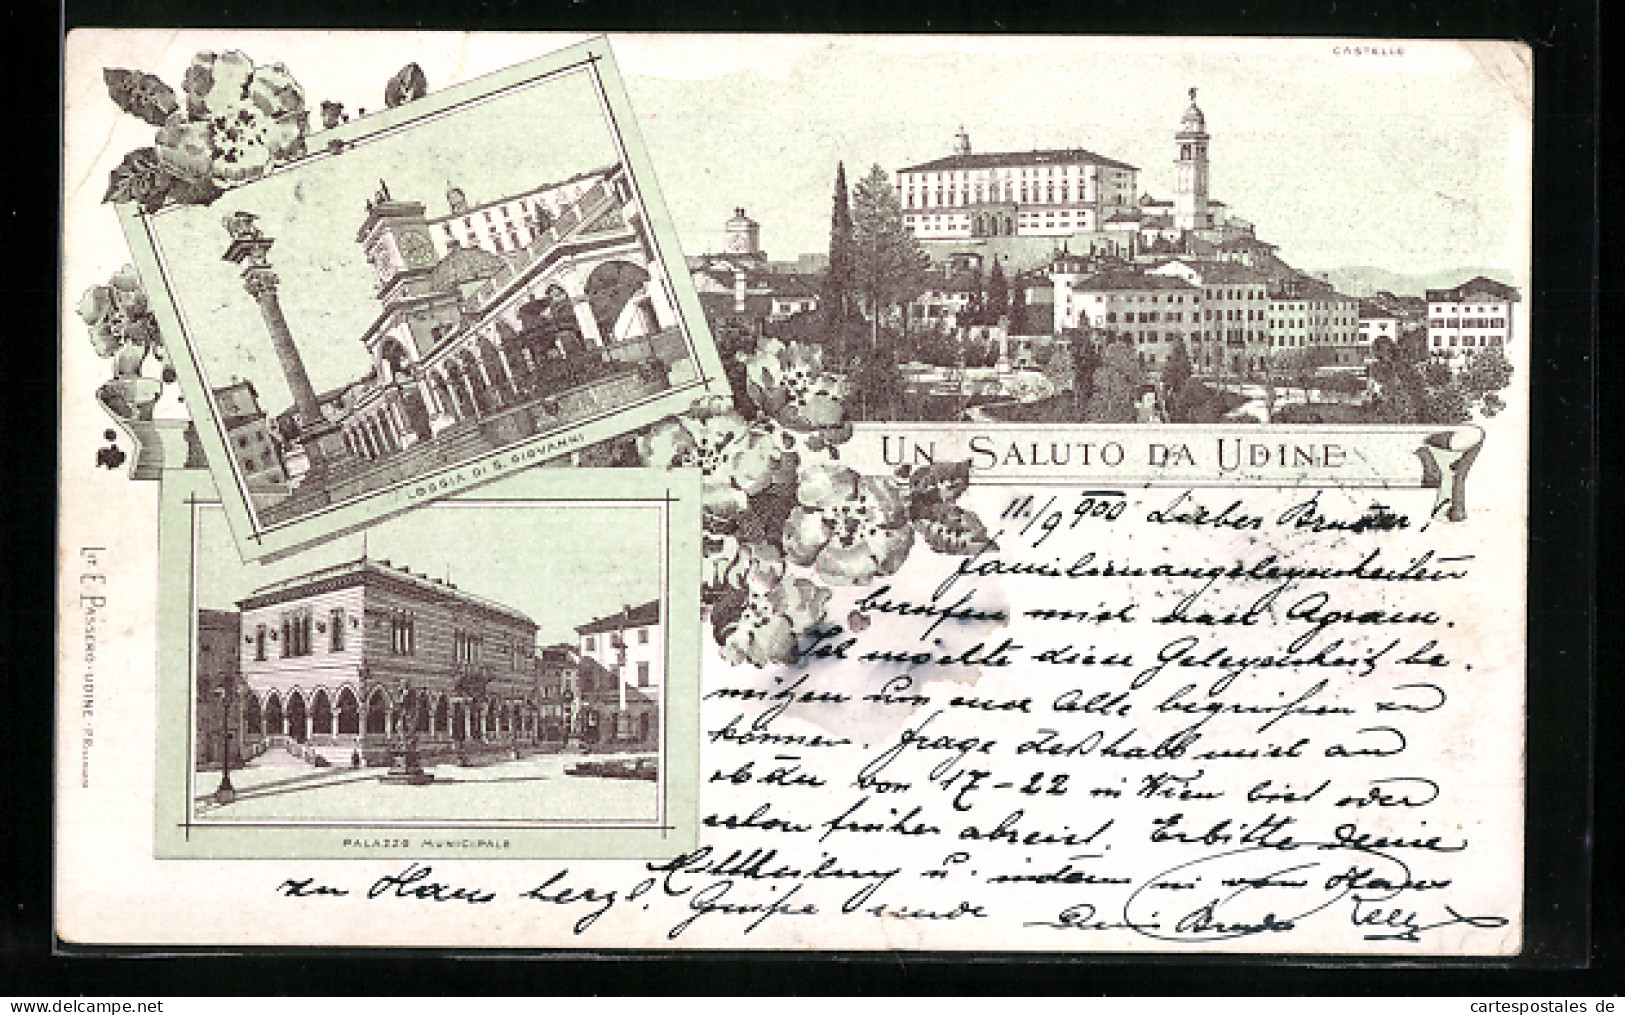 CASTELLO
LOGGIA DI S. GIOVANNI
UN SALUTO DA UDINE
PALAZZO MUNICIPALE
LIT E. PASSERO - UDINE - PR
11./9 900 Lieber Bruder!
Familienangelegenheiten
berufen mich nach Agram.
Ich möchte diese Gelegenheit be-
nützen um euch Alle begrüßen zu
können. Frage deßhalb mich an
ob du von 17-22 in Wien bist oder
schon früher abreist. Erbitte deine
Mittheilung u.
zu Haus herzl. Grüße
Dein Bruder
oldthing Ansichtskarten
cartespostales de